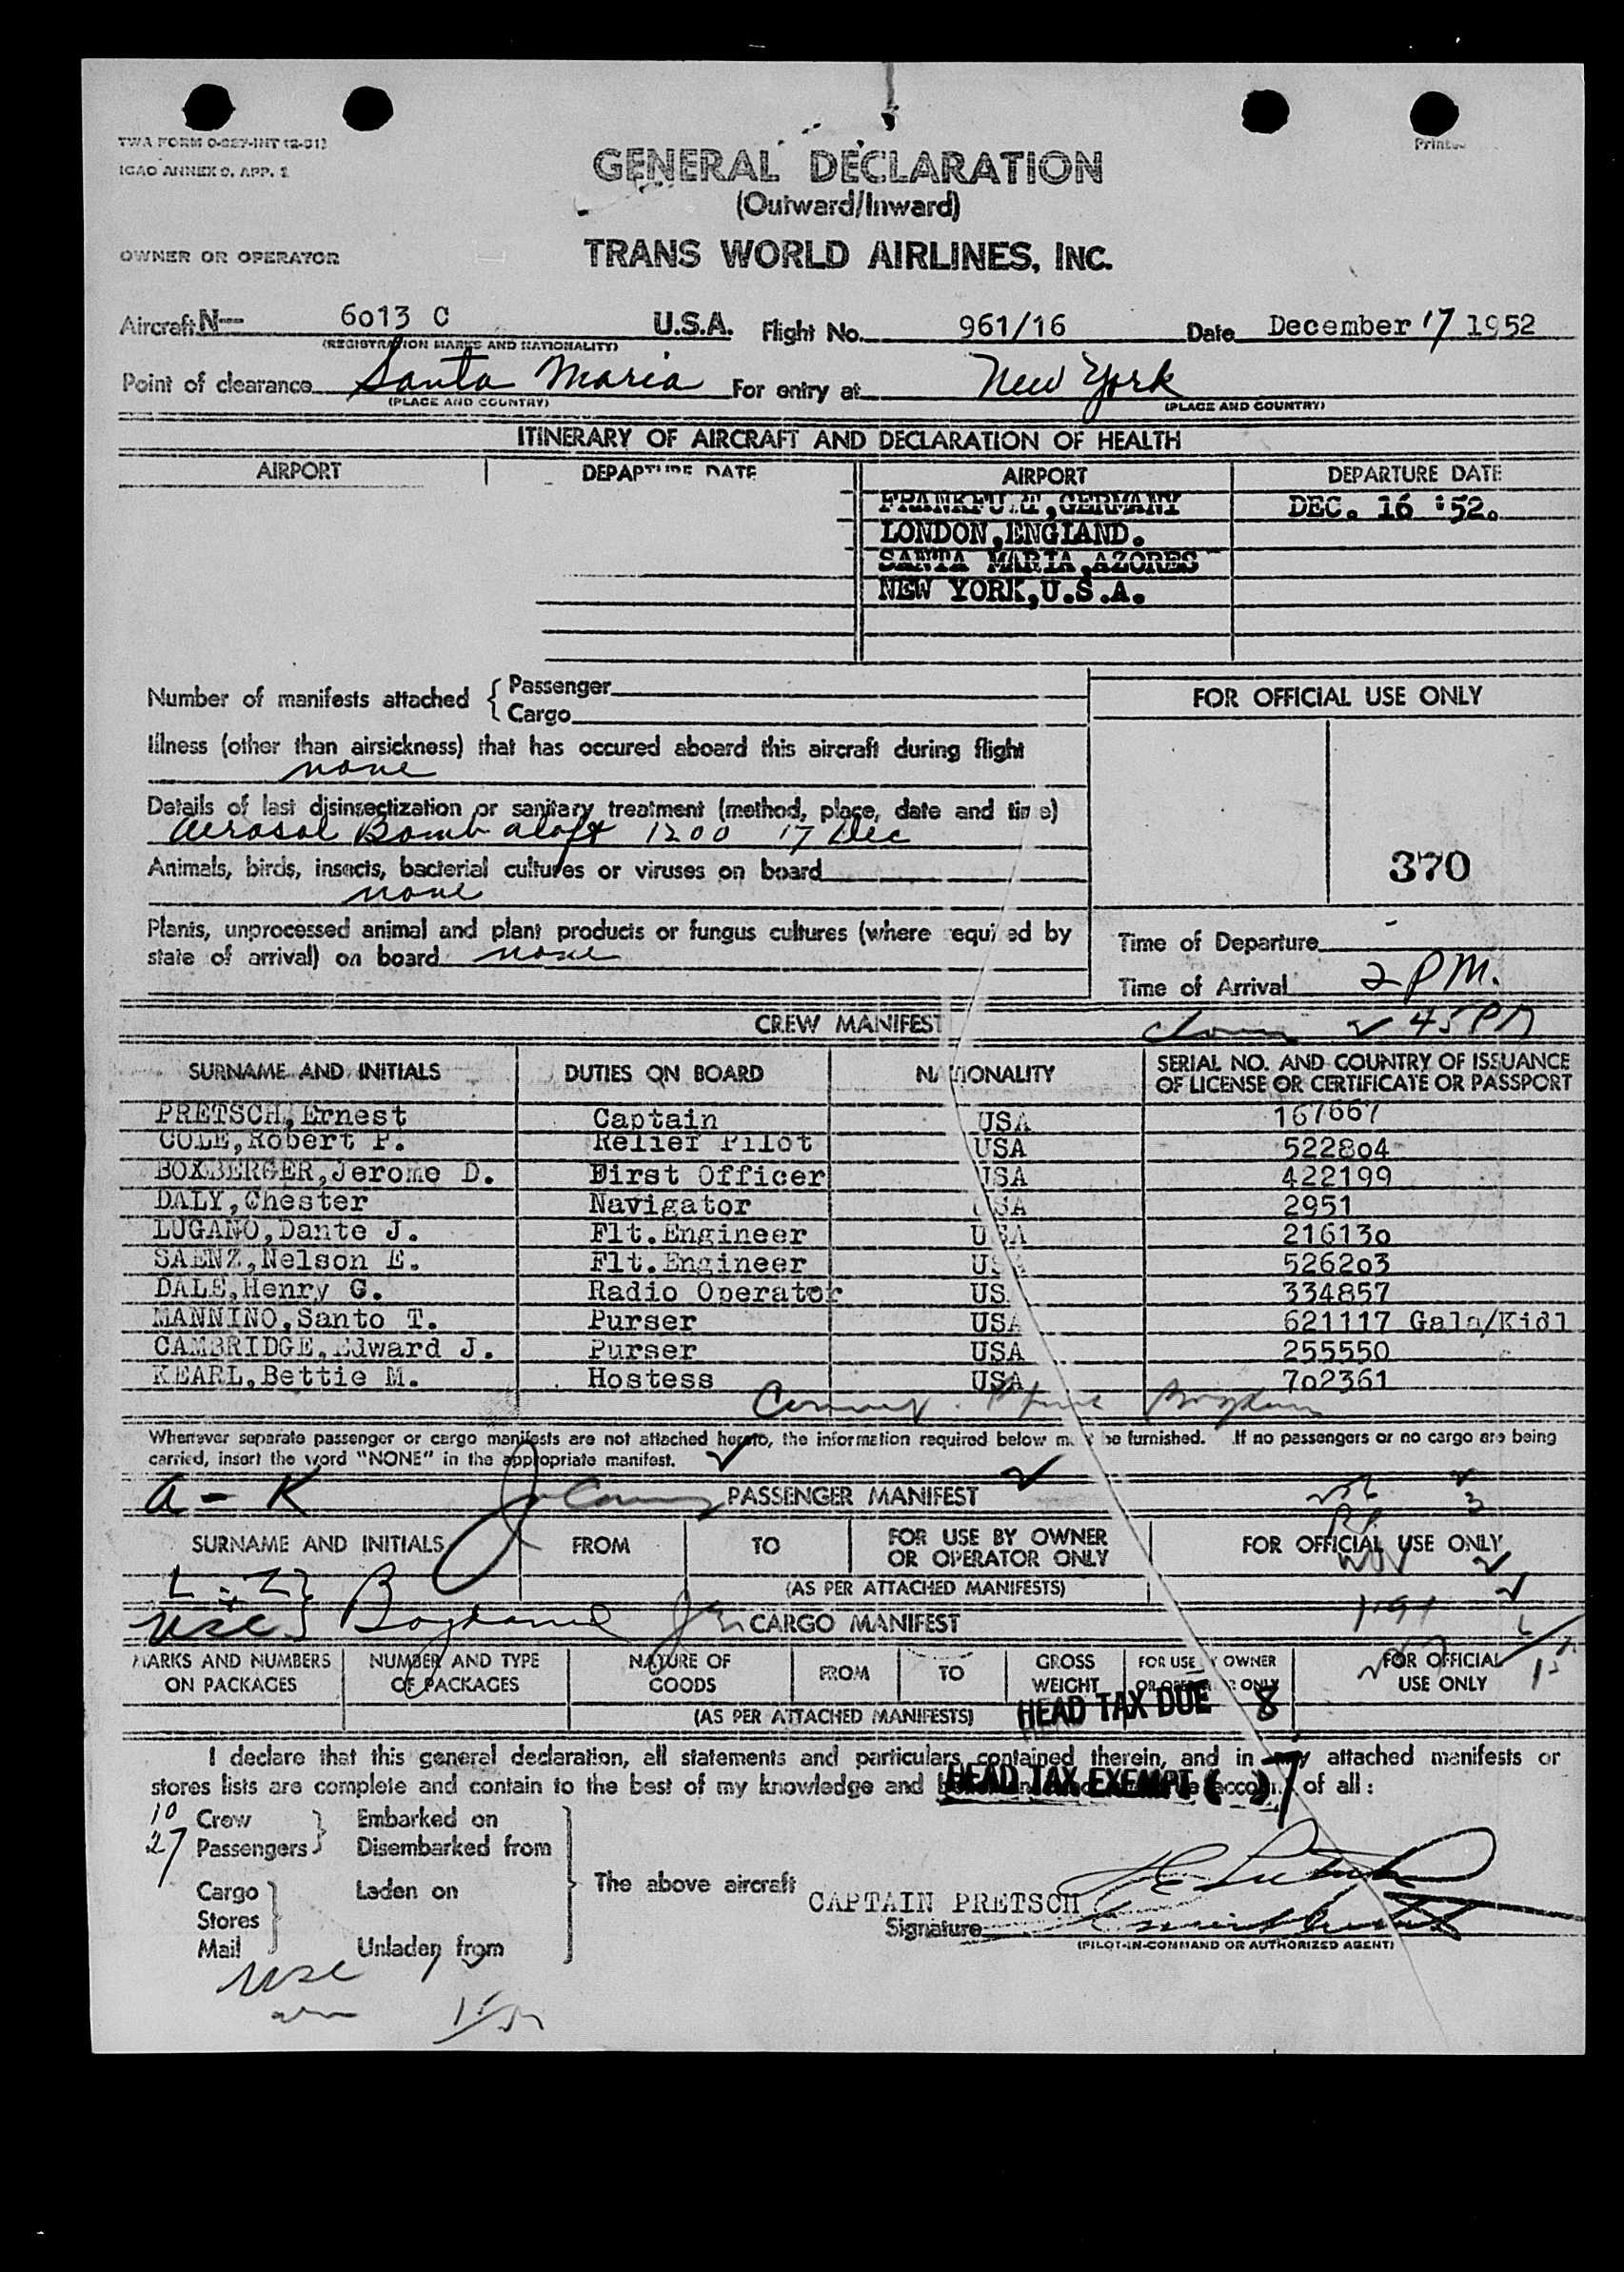 TWA FORM O-287-INT (2-51)
ICAO ANNEX 9, APP. 1
GENERAL DECLARATION
(Outward/Inward)
OWNER OR OPERATOR
TRANS WORLD AIRLINES, INC.
Aircraft N- 6013 C U.S.A. Flight No. 961/16 Date December 17 1952
(REGISTRATION MARKS AND NATIONALITY)
Point of clearance Santa Maria For entry at New York
(PLACE AND COUNTRY) (PLACE AND COUNTRY)
ITINERARY OF AIRCRAFT AND DECLARATION OF HEALTH
AIRPORT DEPARTURE DATE AIRPORT DEPARTURE DATE
FRANKFURT,GERMANY DEC. 16 '52.
LONDON,ENGLAND.
SANTA MARIA,AZORES
NEW YORK,U.S.A.
Number of manifests attached { Passenger
Cargo
FOR OFFICIAL USE ONLY
Illness (other than airsickness) that has occured aboard this aircraft during flight
none
Details of last disinsectization or sanitary treatment (method, place, date and time)
Aerosol Bomb aloft 1200 17 Dec
Animals, birds, insects, bacterial cultures or viruses on board
none
370
Plants, unprocessed animal and plant products or fungus cultures (where required by
state of arrival) on board none
Time of Departure
Time of Arrival 2 PM.
CREW MANIFEST
45 PM
SURNAME AND INITIALS DUTIES ON BOARD NATIONALITY SERIAL NO. AND COUNTRY OF ISSUANCE
OF LICENSE OR CERTIFICATE OR PASSPORT
PRETSCH,Ernest Captain USA 167667
COLE,Robert P. Relief Pilot USA 522804
BOXBERGER,Jerome D. First Officer USA 422199
DALY,Chester Navigator USA 2951
LUGANO,Dante J. Flt.Engineer USA 216130
SAENZ,Nelson E. Flt.Engineer USA 526203
DALE,Henry G. Radio Operator USA 334857
MANNINO,Santo T. Purser USA 621117 Gala/Kidl
CAMBRIDGE,Edward J. Purser USA 255550
KEARL,Bettie M. Hostess USA 702361
Whenever separate passenger or cargo manifests are not attached hereto, the information required below may be furnished. If no passengers or no cargo are being
carried, insert the word "NONE" in the appropriate manifest.
A - K
PASSENGER MANIFEST
SURNAME AND INITIALS FROM TO FOR USE BY OWNER
OR OPERATOR ONLY FOR OFFICIAL USE ONLY
L - Z
(AS PER ATTACHED MANIFESTS)
USC
CARGO MANIFEST
MARKS AND NUMBERS
ON PACKAGES NUMBER AND TYPE
OF PACKAGES NATURE OF
GOODS FROM TO GROSS
WEIGHT FOR USE BY OWNER
OR OPERATOR ONLY FOR OFFICIAL
USE ONLY
(AS PER ATTACHED MANIFESTS)
HEAD TAX DUE 8
I declare that this general declaration, all statements and particulars contained therein, and in any attached manifests or
stores lists are complete and contain to the best of my knowledge and of all :
HEAD TAX EXEMPT ( )
10 Crew } Embarked on
27 Passengers } Disembarked from
Cargo } Laden on
Stores
Mail Unladen from
The above aircraft
CAPTAIN PRETSCH
Signature
(PILOT-IN-COMMAND OR AUTHORIZED AGENT)
USC